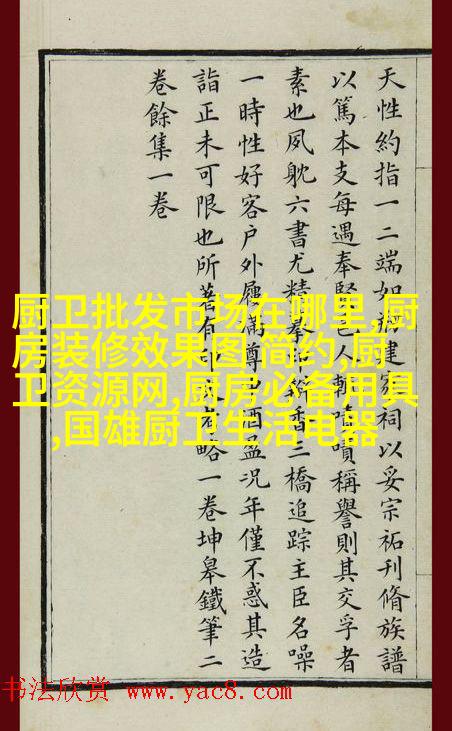 天性約指一二端如
建家祠以妥宗祏刊脩族譜
以篤本支每遇奉
邑人輒嘖嘖稱譽則其交孚者
素也夙躭六書尤精
香三橋追踪主臣名噪
一時性好客户外屨滿樽
酒盈况年僅不惑其造
詣正未可限也所著有
略一卷坤皋鐵筆二
卷餘集一卷
厨卫批发市场在哪里,厨
房装修效果图 简约,厨
卫资源网,厨房必备用具
,国雄厨卫生活电器
书法欣赏 www.yac8.com